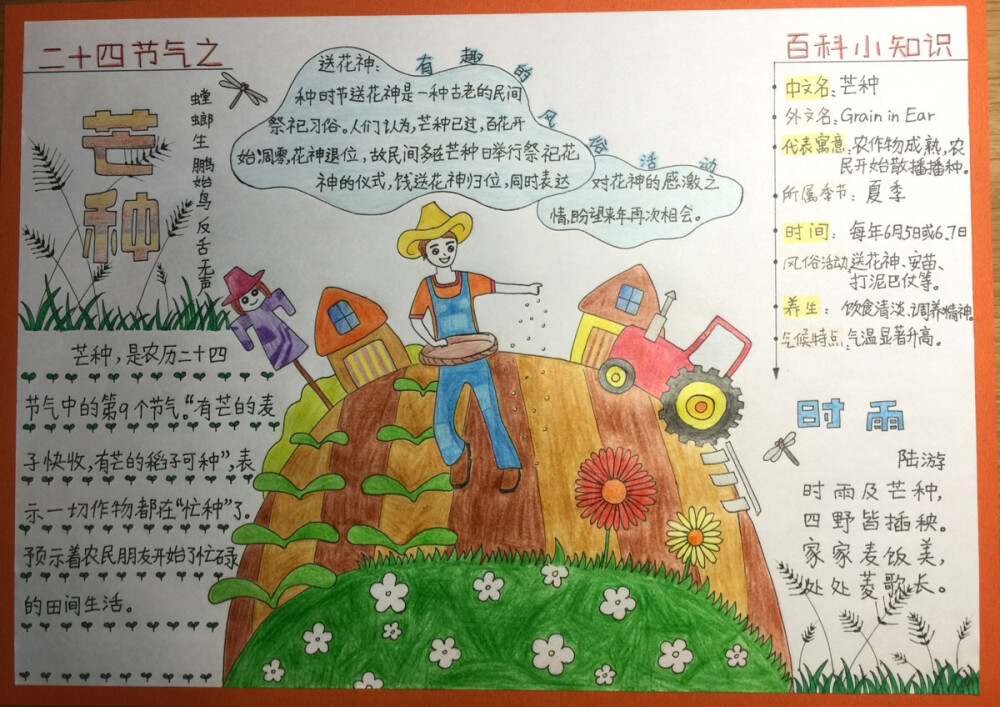 二十四节气之
芒种
螳螂生 鹏始鸟 反舌无声
芒种，是农历二十四
节气中的第9个节气。“有芒的麦
子快收，有芒的稻子可种”，表
示一切作物都在“忙种”了。
预示着农民朋友开始了忙碌
的田间生活。
有趣的风俗活动
送花神：
种时节送花神是一种古老的民间
祭祀习俗。人们认为，芒种已过，百花开
始凋零，花神退位，故民间多在芒种日举行祭祀花
神的仪式，饯送花神归位，同时表达
对花神的感激之
情，盼望来年再次相会。
百科小知识
中文名：芒种
外文名：Grain in Ear
代表寓意：农作物成熟，农
民开始散播播种。
所属季节：夏季
时间：每年6月5日或6.7日
风俗活动：送花神、安苗、
打泥巴仗等。
养生：饮食清淡、调养精神。
气候特点：气温显著升高。
时雨
陆游
时雨及芒种，
四野皆插秧。
家家麦饭美，
处处菱歌长。